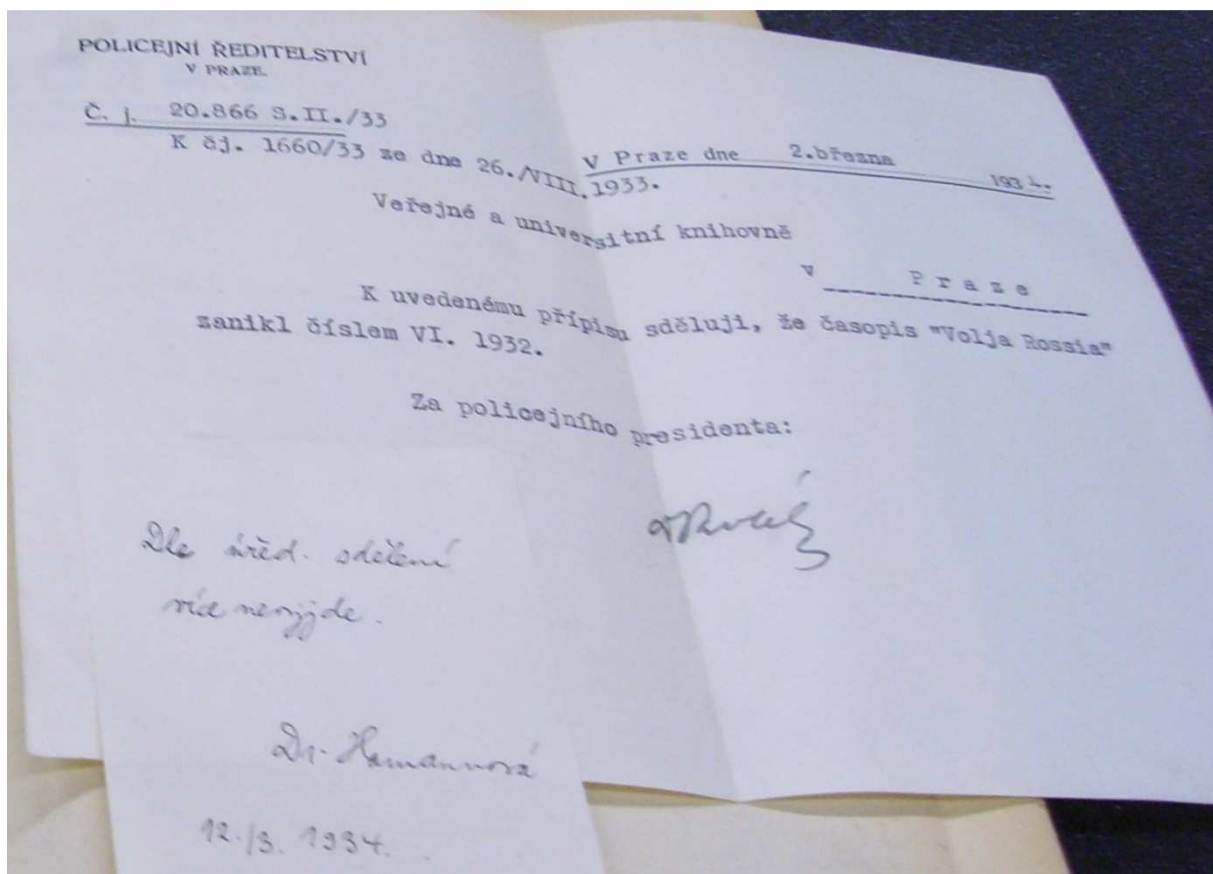 POLICEJNÍ ŘEDITELSTVÍ
V PRAZE.
Č. j. 20.866 S.II./33
V Praze dne 2.března 1934.
K čj. 1660/33 ze dne 26./VIII.1933.
Veřejné a universitní knihovně
v Praze
K uvedenému přípisu sděluji, že časopis "Volja Rossia"
zanikl číslem VI. 1932.
Za policejního presidenta:
Dle úřed. sdělení
více nevyjde.
Dr. Hamannová
12./3. 1934.